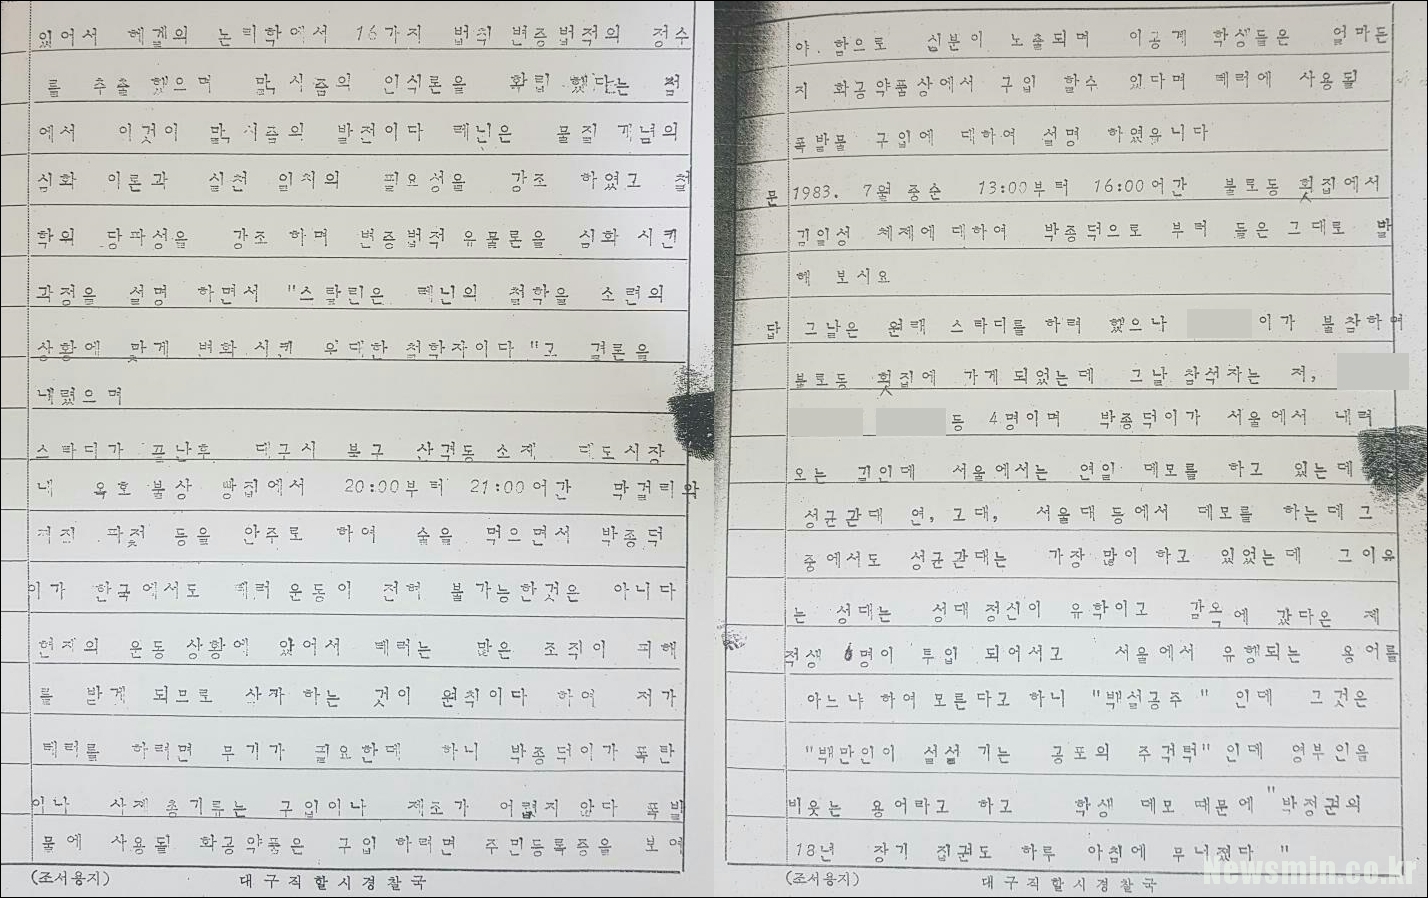 있어서 헤겔의 논리학에서 16가지 법칙 변증법적의 정수
를 추출했으며 맑시즘의 인식론을 확립 했다는 점
에서 이것이 맑시즘의 발전이다 레닌은 물질 개념의
심화 이론과 실천 일치의 필요성을 강조 하였고 철
학의 당파성을 강조 하며 변증법적 유물론을 심화 시킨
과정을 설명 하면서 "스탈린은 레닌의 철학을 소련의
상황에 맞게 변화 시킨 위대한 철학자이다 "고 결론을
내렸으며
스타디가 끝난후 대구시 북구 산격동 소재 대도시장
내 옥호 불상 빵집에서 20:00부터 21:00어간 막걸리와
파젓 등을 안주로 하여 술을 먹으면서 박종덕
이가 한국에서도 테러 운동이 전혀 불가능한것은 아니다
현재의 운동 상황에 있어서 테러는 많은 조직이 피해
를 받게 되므로 삼가 하는 것이 원칙이다 하여 저가
테러를 하려면 무기가 필요한데 하니 박종덕이가 폭탄
이나 사제 총기류는 구입이나 제조가 어렵지 않다 폭발
물에 사용될 화공약품은 구입 하려면 주민등록증을 보여
(조서용지) 대구직할시경찰국
야.함으로 십분이 노출되며 이공계 학생들은 얼마든
지 화공약품상에서 구입 할수 있다며 테러에 사용될
폭발물 구입에 대하여 설명 하였읍니다
문 1983. 7월 중순 13:00부터 16:00어간 불로동 횟집에서
김일성 체제에 대하여 박종덕으로 부터 들은 그대로 말
해 보시요
답 그날은 원래 스타디를 하려 했으나 이가 불참하여
불로동 횟집에 가게 되었는데 그날 참석자는 저,
등 4명이며 박종덕이가 서울에서 내려
오는 길인데 서울에서는 연일 데모를 하고 있는데
성균관대 연, 고대, 서울대 등에서 데모를 하는데 그
중에서도 성균관대는 가장 많이 하고 있었는데 그이유
는 성대는 성대 정신이 유학이고 감옥에 갔다온 제
적생 6명이 투입 되어서고 서울에서 유행되는 용어를
아느냐 하여 모른다고 하니 "백설공주 " 인데 그것은
"백만인이 설설 기는 공포의 주걱턱" 인데 영부인을
비웃는 용어라고 하고 학생 데모 때문에 "박정권의
18년 장기 집권도 하루 아침에 무너졌다 "
(조서용지) 대구직할시경찰국
Newsmin.co.kr